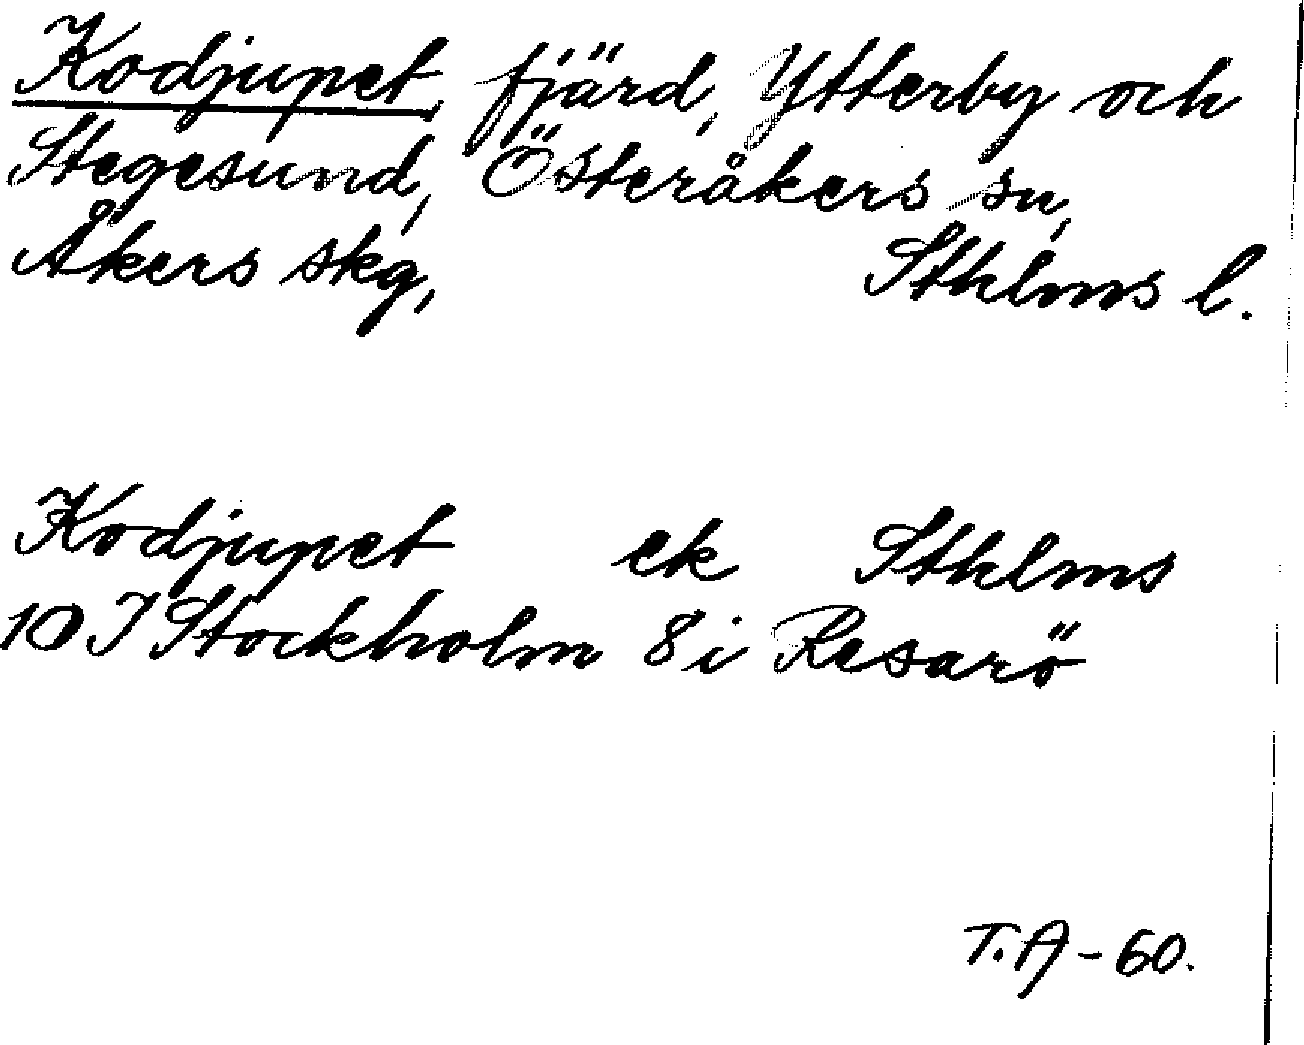 Kodjupet, fjärd, Ytterby och
Stegesund, Österåkers sn,
Åkers skg, Sthlms l.
Kodjupet ek Sthlms
10 I Stockholm 8 i Resarö
T.A-60.